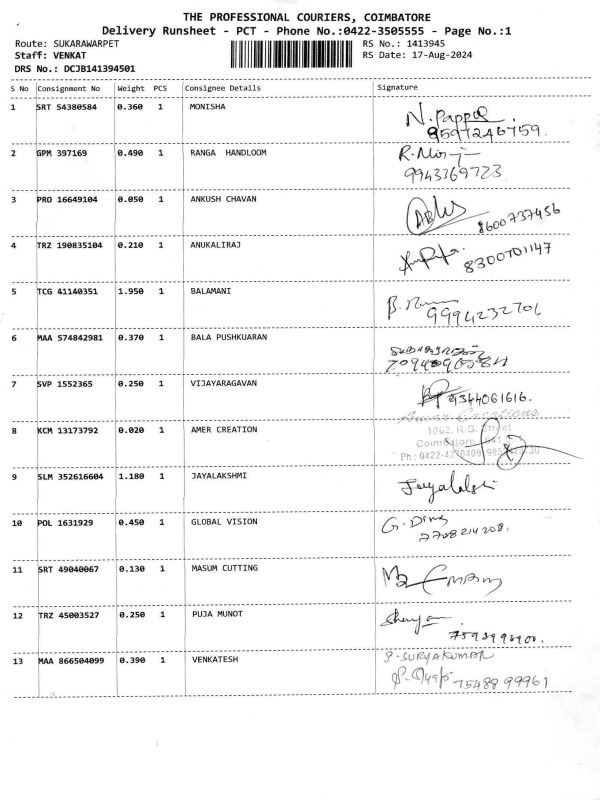 THE PROFESSIONAL COURIERS, COIMBATORE
Delivery Runsheet - PCT - Phone No.:0422-3505555 - Page No.:1
Route: SUKARAWARPET RS No.: 1413945
Staff: VENKAT RS Date: 17-Aug-2024
DRS No.: DCJB141394501
S No Consignment No Weight PCS Consignee Details Signature
1 SRT 54380584 0.360 1 MONISHA
8597246759.
2 GPM 397169 0.490 1 RANGA HANDLOOM
9943369723
3 PRO 16649104 0.050 1 ANKUSH CHAVAN
8600737456
4 TRZ 190835104 0.210 1 ANUKALIRAJ
8300701147
5 TCG 41140351 1.950 1 BALAMANI
9994232701
6 MAA 574842981 0.370 1 BALA PUSHKUARAN
7 SVP 1552365 0.250 1 VIJAYARAGAVAN
9344061616.
Aman Creations
8 KCM 13173792 0.020 1 AMER CREATION
1062, R.G. Street
Coimbatore - 641
Ph : 0422-4270409,
9 SLM 352616604 1.180 1 JAYALAKSHMI
Jayalakshmi
10 POL 1631929 0.450 1 GLOBAL VISION
7708214208.
11 SRT 49040067 0.130 1 MASUM CUTTING
12 TRZ 45003527 0.250 1 PUJA MUNOT
13 MAA 866504099 0.390 1 VENKATESH
P-SURYAKUMAR
75488 99961